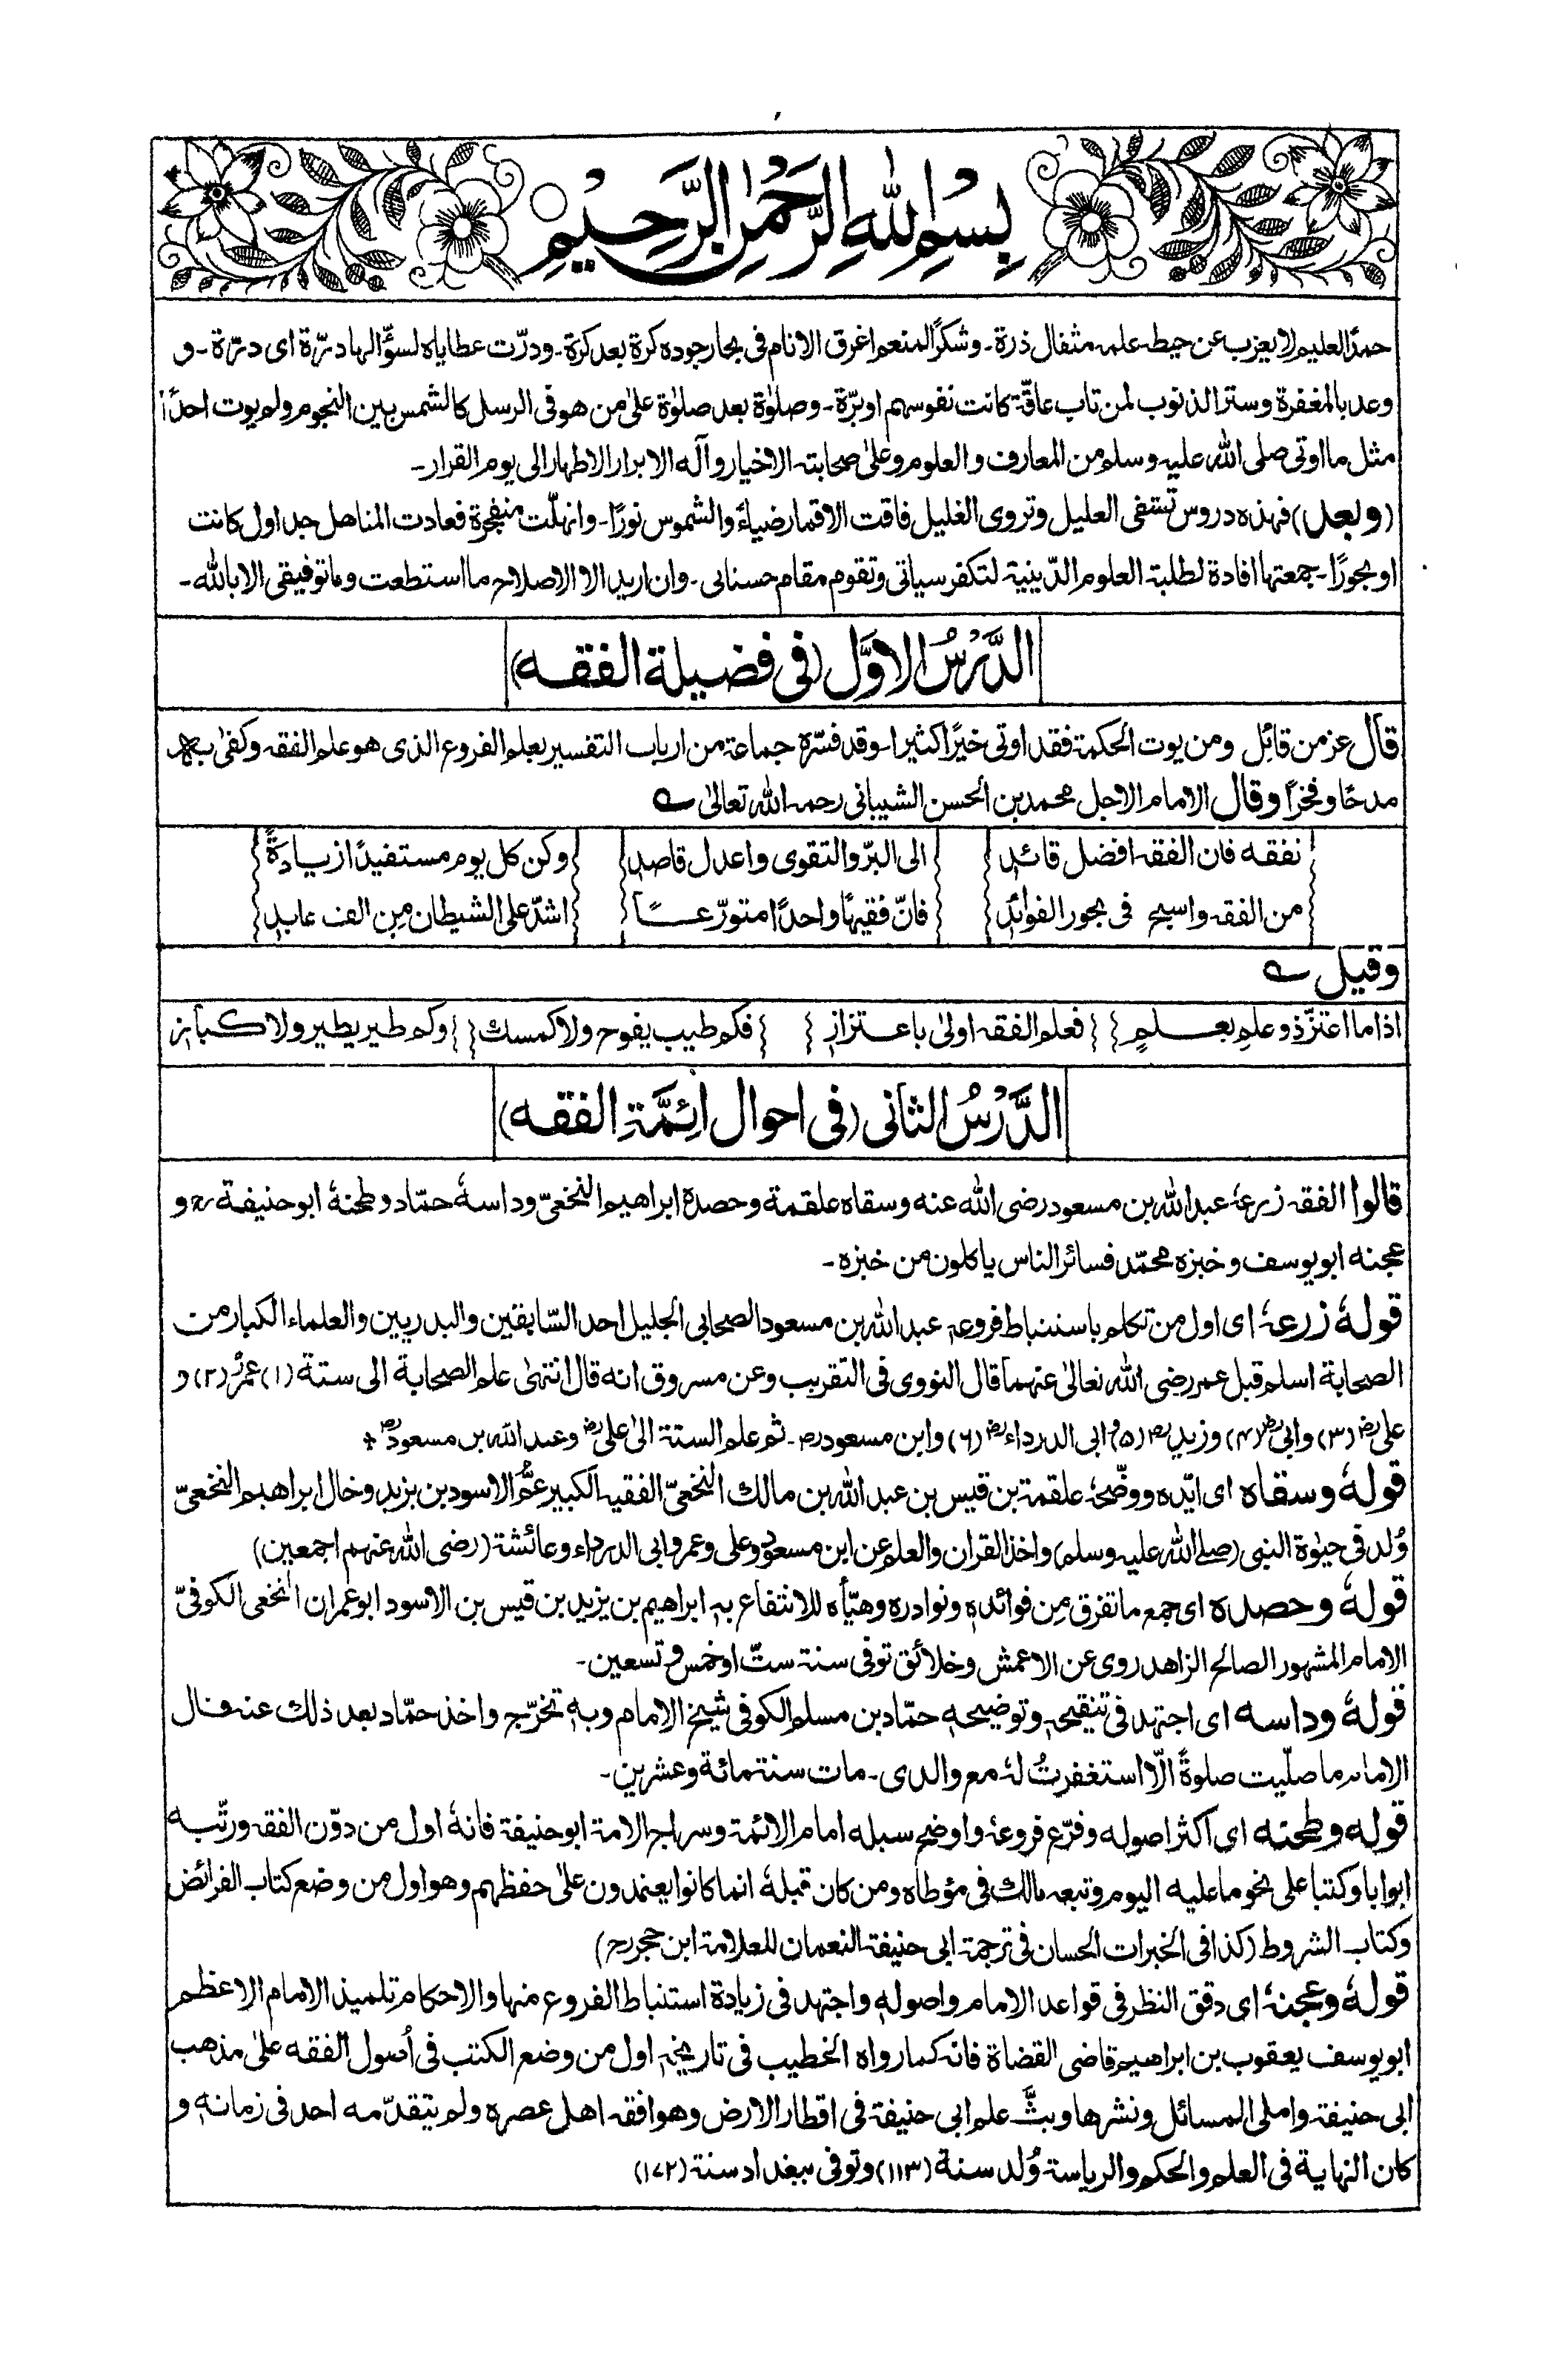 بِسْمِ اللهِ الرَّحْمٰنِ الرَّحِيْمِ
حمدًا لعليم لا يعزب عن حيطة علمه مثقال ذرة۔ وشكرًا لمنعم اغرق الانام فى بحار جوده كرة بعد كرة۔ ودرّت عطاياه لسؤّالها درّة اى درّة۔ و
وعد بالمغفرة وستر الذنوب لمن تاب عاقّة كانت نفوسهم او برّة۔ وصلوٰة بعد صلوٰة علىٰ من هو فى الرسل كالشمس بين النجوم ولم يوت احدًا
مثل ما اوتى صلى الله عليه وسلم من المعارف والعلوم وعلىٰ صحابته الاخيار وآله الابرار الاطهار الى يوم القرار۔
(وبعد) فهذه دروس تشفى العليل وتروى الغليل فاقت الاقمار ضياءً والشموس نورًا۔ وانهلّت منفجرة فعادت المناهل جداول كانت
او بحورًا۔ جمعتها افادة لطلبة العلوم الدّينية لتكفر سياتى وتقوم مقام حسناتى۔ وان اريد الا الاصلاح ما استطعت وما توفيقى الا بالله۔
الدَّرْسُ الاوَّل (فى فضيلة الفقه)
قال عز من قائل ومن يوت الحكمة فقد اوتى خيرًا كثيرا۔ وقد فسّره جماعة من ارباب التفسير بعلم الفروع الذى هو علم الفقه وكفىٰ به
مدحًا وفخرًا وقال الامام الاجل محمد بن الحسن الشيبانى رحمه الله تعالىٰ
تفقه فان الفقه افضل قائد الى البرّ والتقوى واعدل قاصد وكن كل يوم مستفيدًا زيادةً
من الفقه واسبح فى بحور الفوائد فانّ فقيهًا واحدًا متورّعًا اشدّ على الشيطان من الف عابد
وقيل
اذا ما اعتزّ ذو علم بعلمٍ فعلم الفقه اولىٰ باعتزاز فكم طيب يفوح ولا كمسك وكم طير يطير ولا كباز
الدَّرْسُ الثانى (فى احوال ائِمَّةِ الفقه)
قالوا الفقه زرعهٗ عبد الله بن مسعود رضى الله عنه وسقاه علقمة وحصده ابراهيم النخعىّ وداسهٗ حمّاد وطحنهٗ ابو حنيفة رح و
عجنه ابو يوسف وخبزه محمّد فسائر الناس ياكلون من خبزه۔
قولهٗ زرعهٗ اى اول من تكلم باستنباط فروعه عبد الله بن مسعود الصحابى الجليل احد السّابقين والبدريين والعلماء الكبار من
الصحابة اسلم قبل عمر رضى الله تعالىٰ عنهما قال النووى فى التقريب وعن مسروق انه قال انتهىٰ علم الصحابة الى ستة (١) عمر رض (٢) و
على رض (٣) وابى رض (٤) وزيد رض (٥) وابى الدرداء رض (٦) وابن مسعود رض۔ ثم علم الستة الىٰ على رض وعبد الله بن مسعود رض
قولهٗ وسقاه اى ايّده ووضّحهٗ علقمة بن قيس بن عبد الله بن مالك النخعىّ الفقيه الكبير عمُّ الاسود بن يزيد وخال ابراهيم النخعىّ
وُلد فى حيٰوة النبى (صلے الله عليه وسلم) واخذ القران والعلم عن ابن مسعود وعلى وعمر وابى الدرداء وعائشة (رضى الله عنهم اجمعين)
قولهٗ وحصده اى جمع ما تفرق من فوائده ونوادره وهيّأه للانتفاع به ابراهيم بن يزيد بن قيس بن الاسود ابو عمران النخعى الكوفىّ
الامام المشهور الصالح الزاهد روى عن الاعمش وخلائق توفى سنة ستّ او خمس وتسعين۔
قولهٗ وداسه اى اجتهد فى تنقيحه وتوضيحه حمّاد بن مسلم الكوفى شيخ الامام وبه تخرّج واخذ حمّاد بعد ذلك عنه قال
الامام ما صلّيت صلوةً الّا استغفرتُ لهٗ مع والدى۔ مات سنة مائة وعشرين۔
قوله وطحنه اى اكثر اصوله وفرّع فروعهٗ واوضح سبله امام الائمة وسراج الامة ابو حنيفة فانهٗ اول من دوّن الفقه ورتّبه
ابوابا وكتبا على نحو ما عليه اليوم وتبعه مالك فى مؤطاه ومن كان قبلهٗ انما كانوا يعتمدون علىٰ حفظهم وهو اول من وضع كتاب الفرائض
وكتاب الشروط (كذا فى الخيرات الحسان فى ترجمة ابى حنيفة النعمان للعلامة ابن حجر رح)
قولهٗ وعجنهٗ اى دقق النظر فى قواعد الامام واصوله واجتهد فى زيادة استنباط الفروع منها والاحكام تلميذ الامام الاعظم
ابو يوسف يعقوب بن ابراهيم قاضى القضاة فانه كما رواه الخطيب فى تاريخه اول من وضع الكتب فى اُصول الفقه علىٰ مذهب
ابى حنيفة واملى المسائل ونشرها وبثّ علم ابى حنيفة فى اقطار الارض وهو افقه اهل عصره ولم يتقدّمه احد فى زمانه و
كان النهاية فى العلم والحكم والرياسة وُلد سنة (١١٣) وتوفى ببغداد سنة (١٧٢)